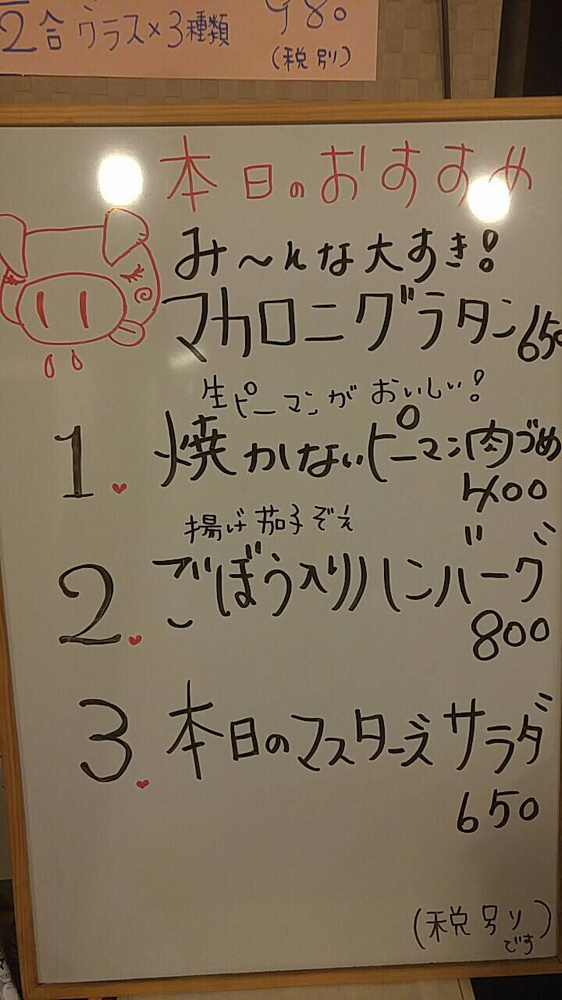 2合グラス×3種類 980
(税別)
本日のおすすめ
み〜んな大すき!
マカロニグラタン650
生ピーマンがおいしい!
1. 焼かないピーマン肉づめ
400
揚げ茄子ぞえ
2. ごぼう入りハンバーグ
800
3. 本日のマスターズサラダ
650
(税別り
です)